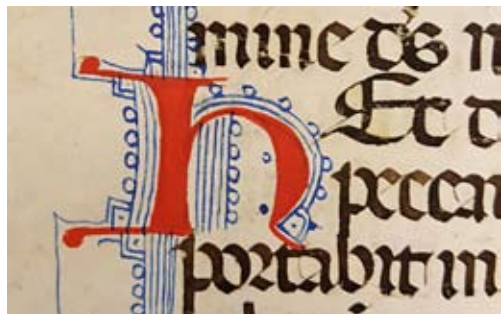 mine ds
hEc d
pecca
portabit in